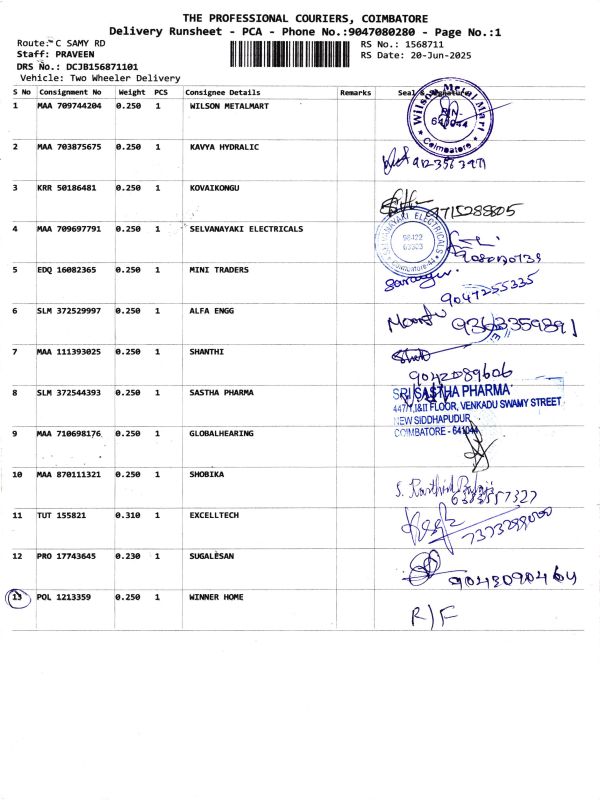 THE PROFESSIONAL COURIERS, COIMBATORE
Delivery Runsheet - PCA - Phone No.:9047080280 - Page No.:1
Route: C SAMY RD
RS No.: 1568711
Staff: PRAVEEN
RS Date: 20-Jun-2025
DRS No.: DCJB156871101
Vehicle: Two Wheeler Delivery
S No Consignment No Weight PCS Consignee Details Remarks Seal & Signature
1 MAA 709744204 0.250 1 WILSON METALMART
Wilson Metal Mart
PIN-
641044
Coimbatore
2 MAA 703875675 0.250 1 KAVYA HYDRALIC
3 KRR 50186481 0.250 1 KOVAIKONGU
9715288805
4 MAA 709697791 0.250 1 SELVANAYAKI ELECTRICALS
SELVANAYAKI ELECTRICALS
98422
Coimbatore-44
5 EDQ 16082365 0.250 1 MINI TRADERS
9047255335
6 SLM 372529997 0.250 1 ALFA ENGG
9363359891
7 MAA 111393025 0.250 1 SHANTHI
9042089606
8 SLM 372544393 0.250 1 SASTHA PHARMA
SRI SASTHA PHARMA
447/1,I&II FLOOR, VENKADU SWAMY STREET
NEW SIDDHAPUDUR
COIMBATORE - 641044
9 MAA 710698176 0.250 1 GLOBALHEARING
10 MAA 870111321 0.250 1 SHOBIKA
11 TUT 155821 0.310 1 EXCELLTECH
12 PRO 17743645 0.230 1 SUGALESAN
9043090464
13 POL 1213359 0.250 1 WINNER HOME
R/F